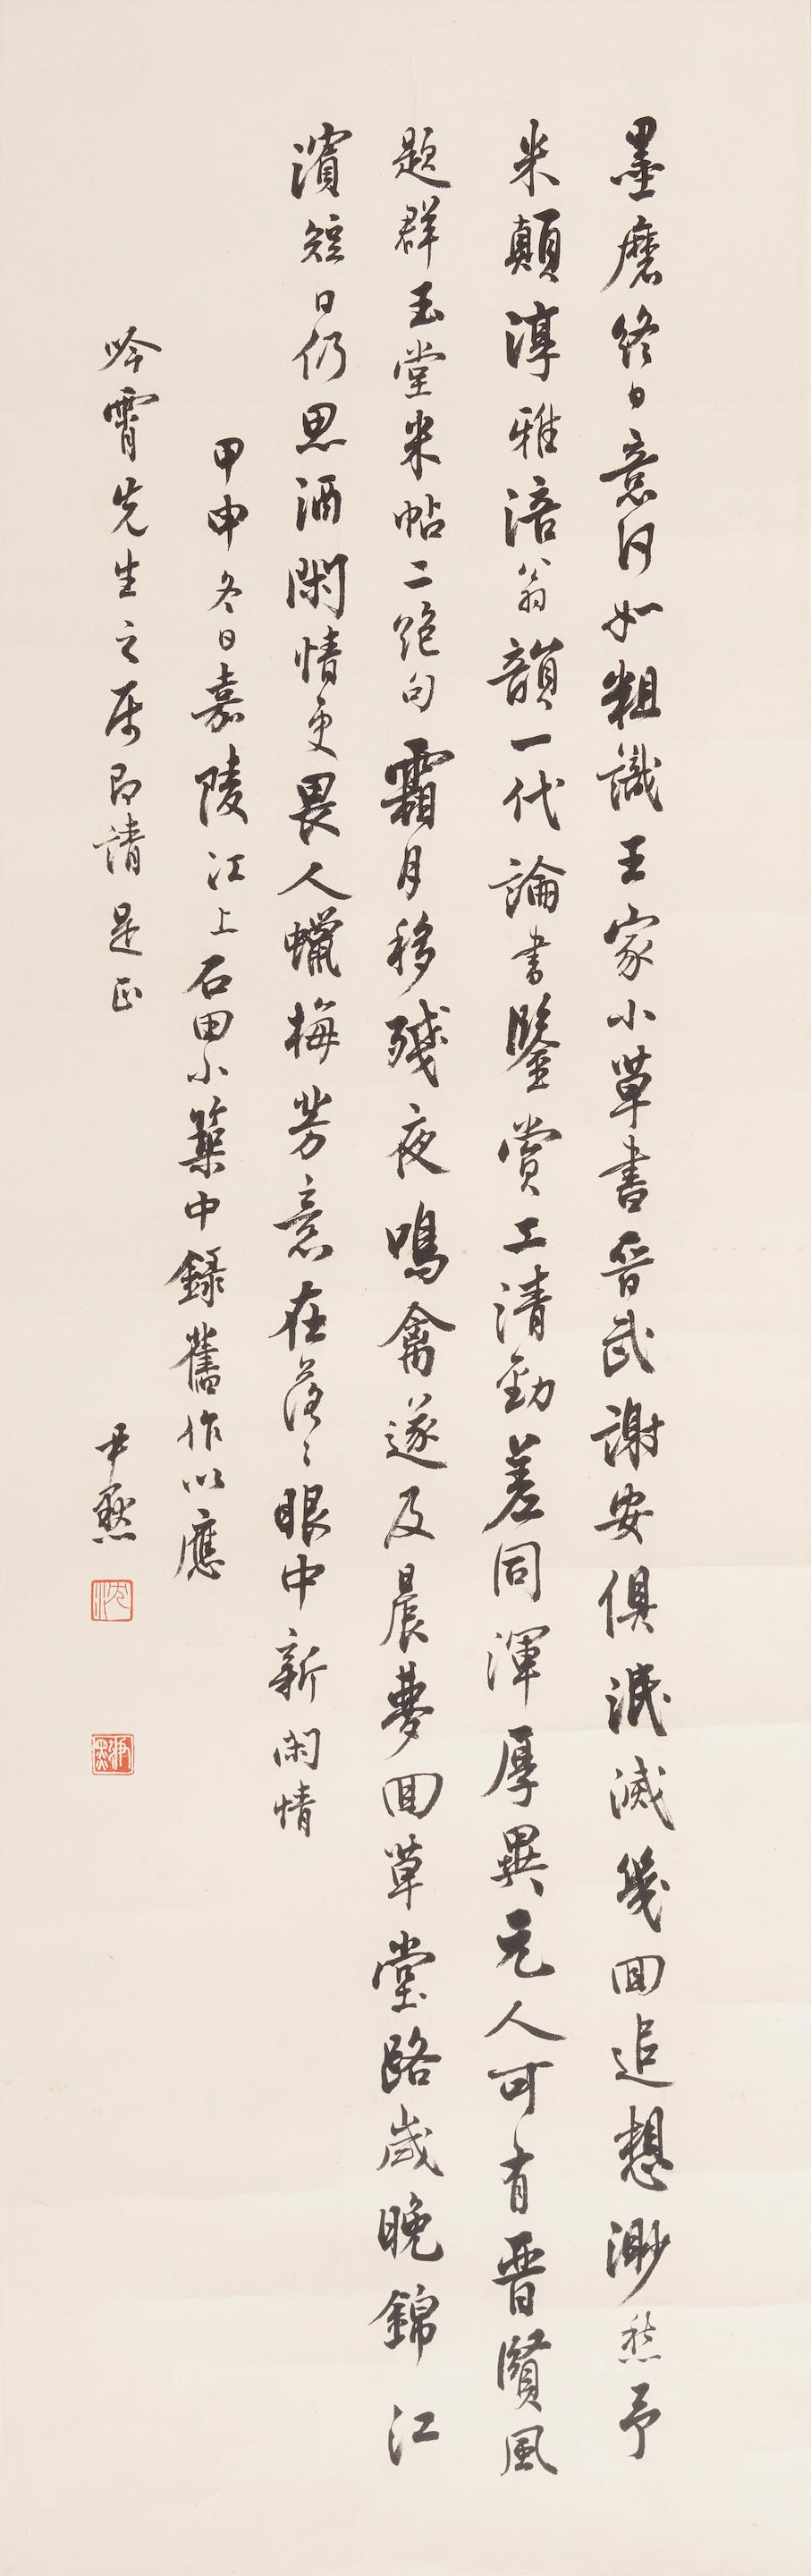 墨磨終日意何如粗識王家小草書晉武謝安俱泯滅幾回追想渺愁予
米顛淳雅涪翁韻一代論書鑒賞工清勁差同渾厚異元人可有晉賢風
題群玉堂米帖二絕句霜月移殘夜鳴禽遂及晨夢回草堂路歲晚錦江
濱短日仍思酒閑情更畏人蠟梅芳意在落〻眼中新閑情
甲申冬日嘉陵江上石田小築中錄舊作以應
吟霄先生之属即請是正
尹默
沈